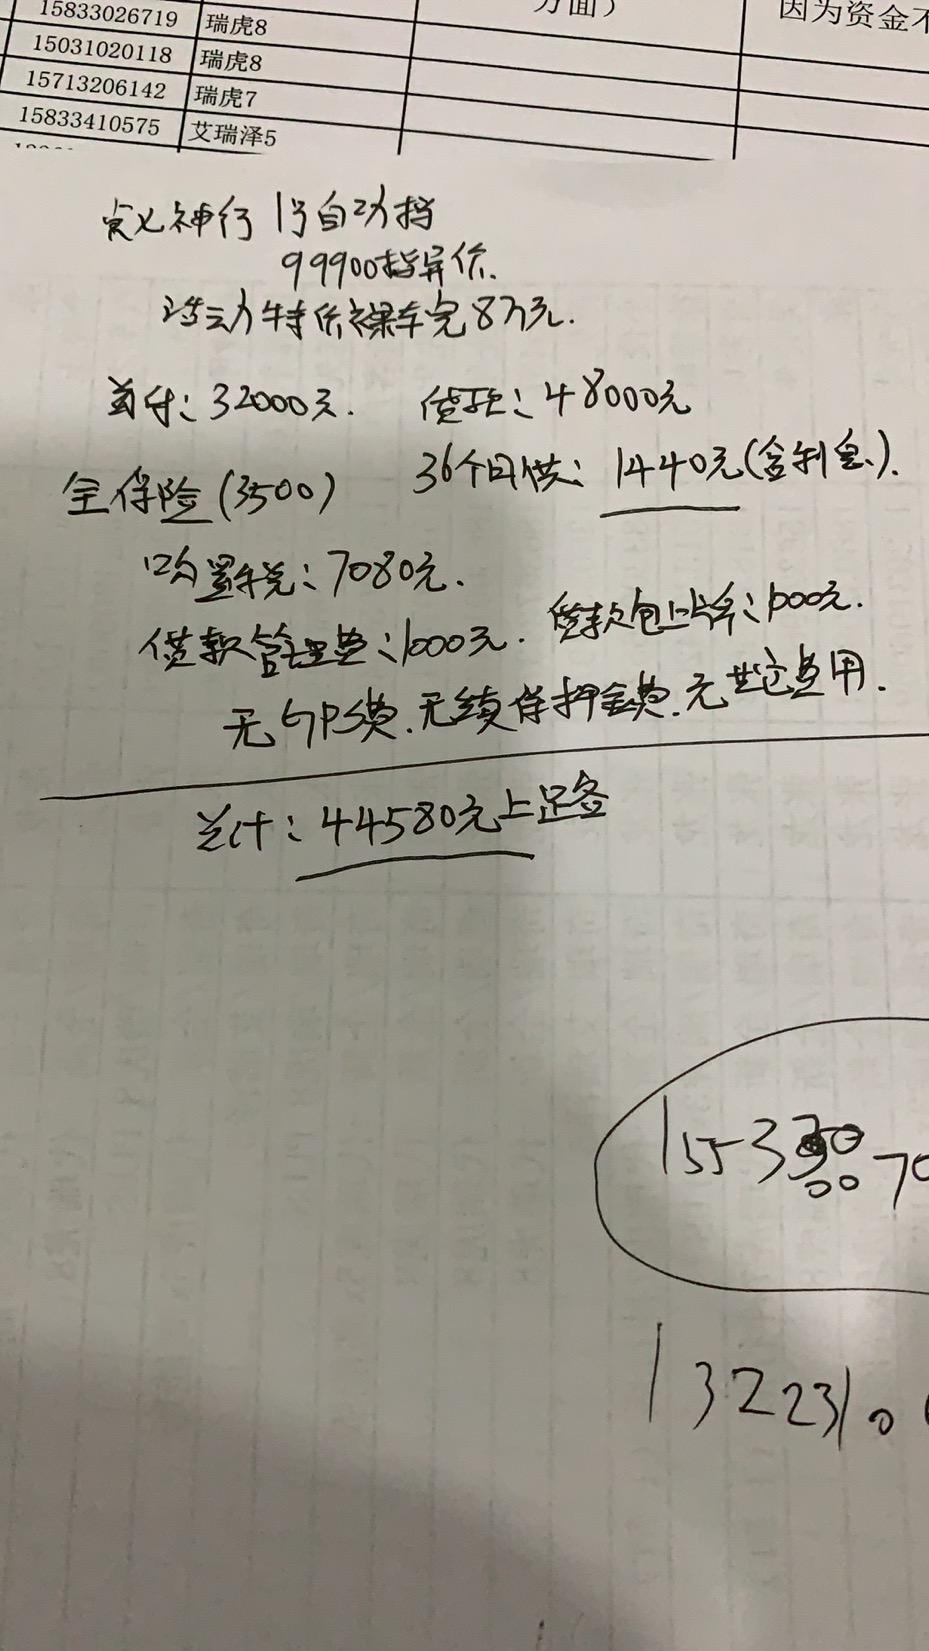 15833026719 瑞虎8 方面） 因为资金不
15031020118 瑞虎8
15713206142 瑞虎7
15833410575 艾瑞泽5
神行 1号自动挡
99900指导价.
活动特价裸车完8万元.
首付:32000元. 贷款:48000元
全保险(3500) 36个月供:1440元(含利息).
购置税:7080元.
贷款管理费:1000元. 贷款包上牌:1000元.
无GPS费.无续保押金费.无其它费用.
总计:44580元上足备
132231